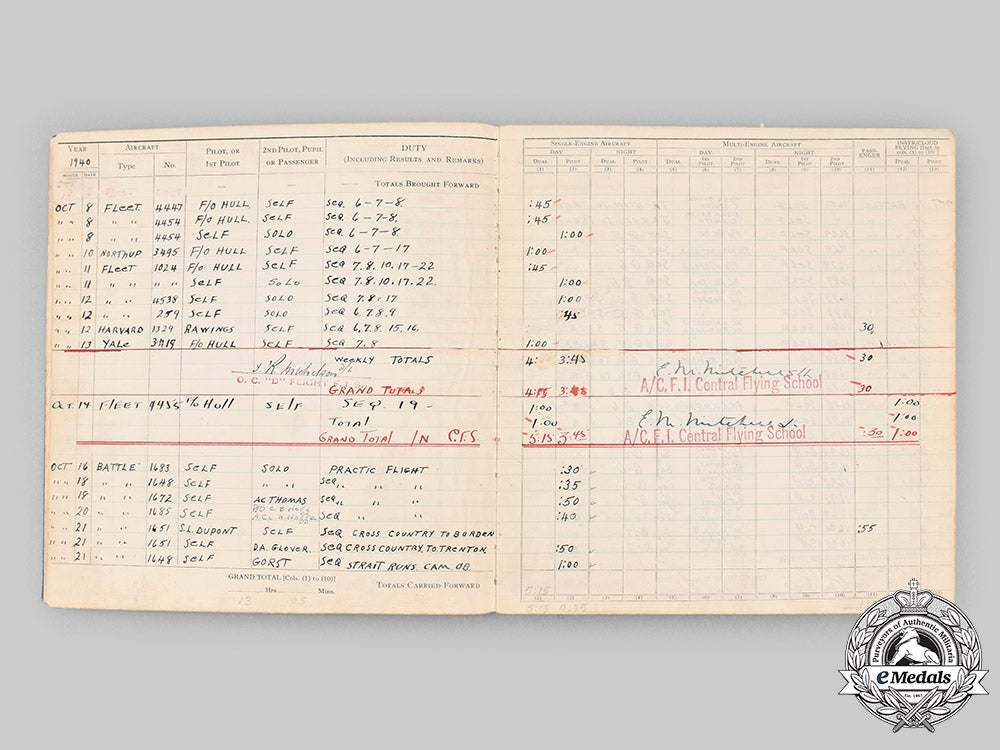 YEAR AIRCRAFT PILOT, OR 2ND PILOT, PUPIL DUTY
1940 Type No. 1ST PILOT OR PASSENGER (INCLUDING RESULTS AND REMARKS)
MONTH DATE
— — — — — TOTALS BROUGHT FORWARD
OCT 8 FLEET 4447 F/O HULL SELF SEQ. 6-7-8.
" " 8 " " 4454 F/O HULL SELF SEQ. 6-7-8.
" " 8 " " 4454 SELF SOLO SEQ. 6-7-8
" " 10 NORTHUP 3495 F/O HULL SELF SEQ 6-7-17
" " 11 FLEET 1024 F/O HULL SELF SEQ 7.8.10.17-22
" " 11 " " " " SELF SOLO SEQ 7.8.10.17.22.
" " 12 " " 4538 SELF SOLO SEQ 7.8.17
" " 12 " " 259 SELF SOLO SEQ 6.7.8.9
" " 12 HARVARD 1329 RAWINGS SELF SEQ 6.7.8.15.16.
" " 13 YALE 3419 F/O HULL SELF SEQ 7.8
WEEKLY TOTALS
O. C. "D" FLIGHT
GRAND TOTALS
OCT. 14 FLEET F/O HULL SELF SEQ 19-
TOTAL
GRAND TOTAL IN C.F.S.
OCT 16 BATTLE 1683 SELF SOLO PRACTIC FLIGHT
" " 18 " " 1648 SELF " " SEQ " " "
" " 18 " " 1672 SELF AC THOMAS SEQ " " "
" " 20 " " 1685 SELF SEQ " "
" " 21 " " 1651 S.L. DUPONT SELF SEQ CROSS COUNTRY TO BORDEN
" " 21 " " 1651 SELF D.A. GLOVER. SEQ CROSS COUNTRY. TO. TRENTON
" " 21 " " 1648 SELF GORST SEQ STRAIT RUNS. CAM. OB.
GRAND TOTAL [Cols. (1) to (10)] TOTALS CARRIED FORWARD
Hrs. Mins.
SINGLE-ENGINE AIRCRAFT MULTI-ENGINE AIRCRAFT PASS-ENGER INSTR/CLOUD FLYING [Incl. in cols. (1) to (10)]
DAY NIGHT DAY NIGHT
DUAL PILOT DUAL PILOT DUAL 1ST PILOT 2ND PILOT DUAL 1ST PILOT 2ND PILOT DUAL PILOT
(1) (2) (3) (4) (5) (6) (7) (8) (9) (10) (11) (12) (13)
:45
:45
1:00
1:00
:45
1:00
1:00
:45
30
1:00
4: 3:45 30
A/C. F. I. Central Flying School 30
1:00 1:00
1:00 1:00
5:15 3:45 A/C. F. I. Central Flying School :50 1:00
:30
:35
:50
:40
:55
:50
1:00
5:15
(1) (2) (3) (4) (5) (6) (7) (8) (9) (10) (11)
Purveyors of Authentic Militaria
eMedals